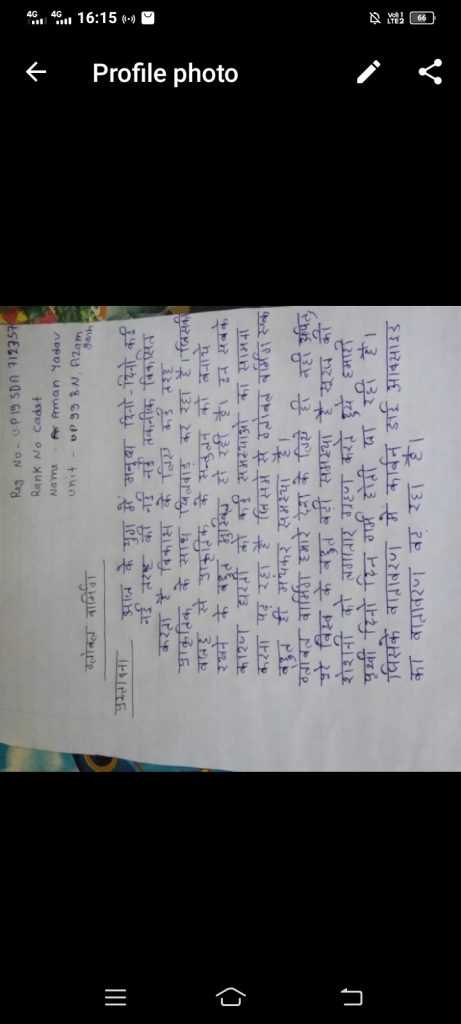 4G 4G 16:15
Vo) 1 LTE2 66
Profile photo
Reg No - UP19 SDA 712757
Rank No Cadet
Name - Aman Yadav
Unit - UP 99 BN. Azam
garh
ग्लोबल वार्मिंग
प्रस्तावना
आज के युग में मनुष्य दिनो-दिनो कई
नई तरह की नई नई तकनीक विकसित
करता है विकास के लिए कई तरह
प्राकृतिक के साथ खिलवाड़ कर रहा है। जिसकी
वजह से प्राकृतिक के सन्तुलन को बनाये
रखने के बहुत मुश्किल हो रही है। इन सबके
कारण धरती को कई समस्याओ का सामना
करना पड़ रहा है जिसमे से ग्लोबल वार्मिंग एक
बहुत ही भयंकर समस्या है।
ग्लोबल वार्मिंग हमारे देश के लिए ही नही अपितु
पूरे विश्व के बहुत बड़ी समस्या है सूरज की
रोशनी को लगातार ग्रहण करते हुये हमारी
पृथ्वी दिनो दिन गर्म होती जा रही है।
जिसके वातावरण मे कार्बन डाई आक्साइड
का वातावरण बढ़ रहा है।